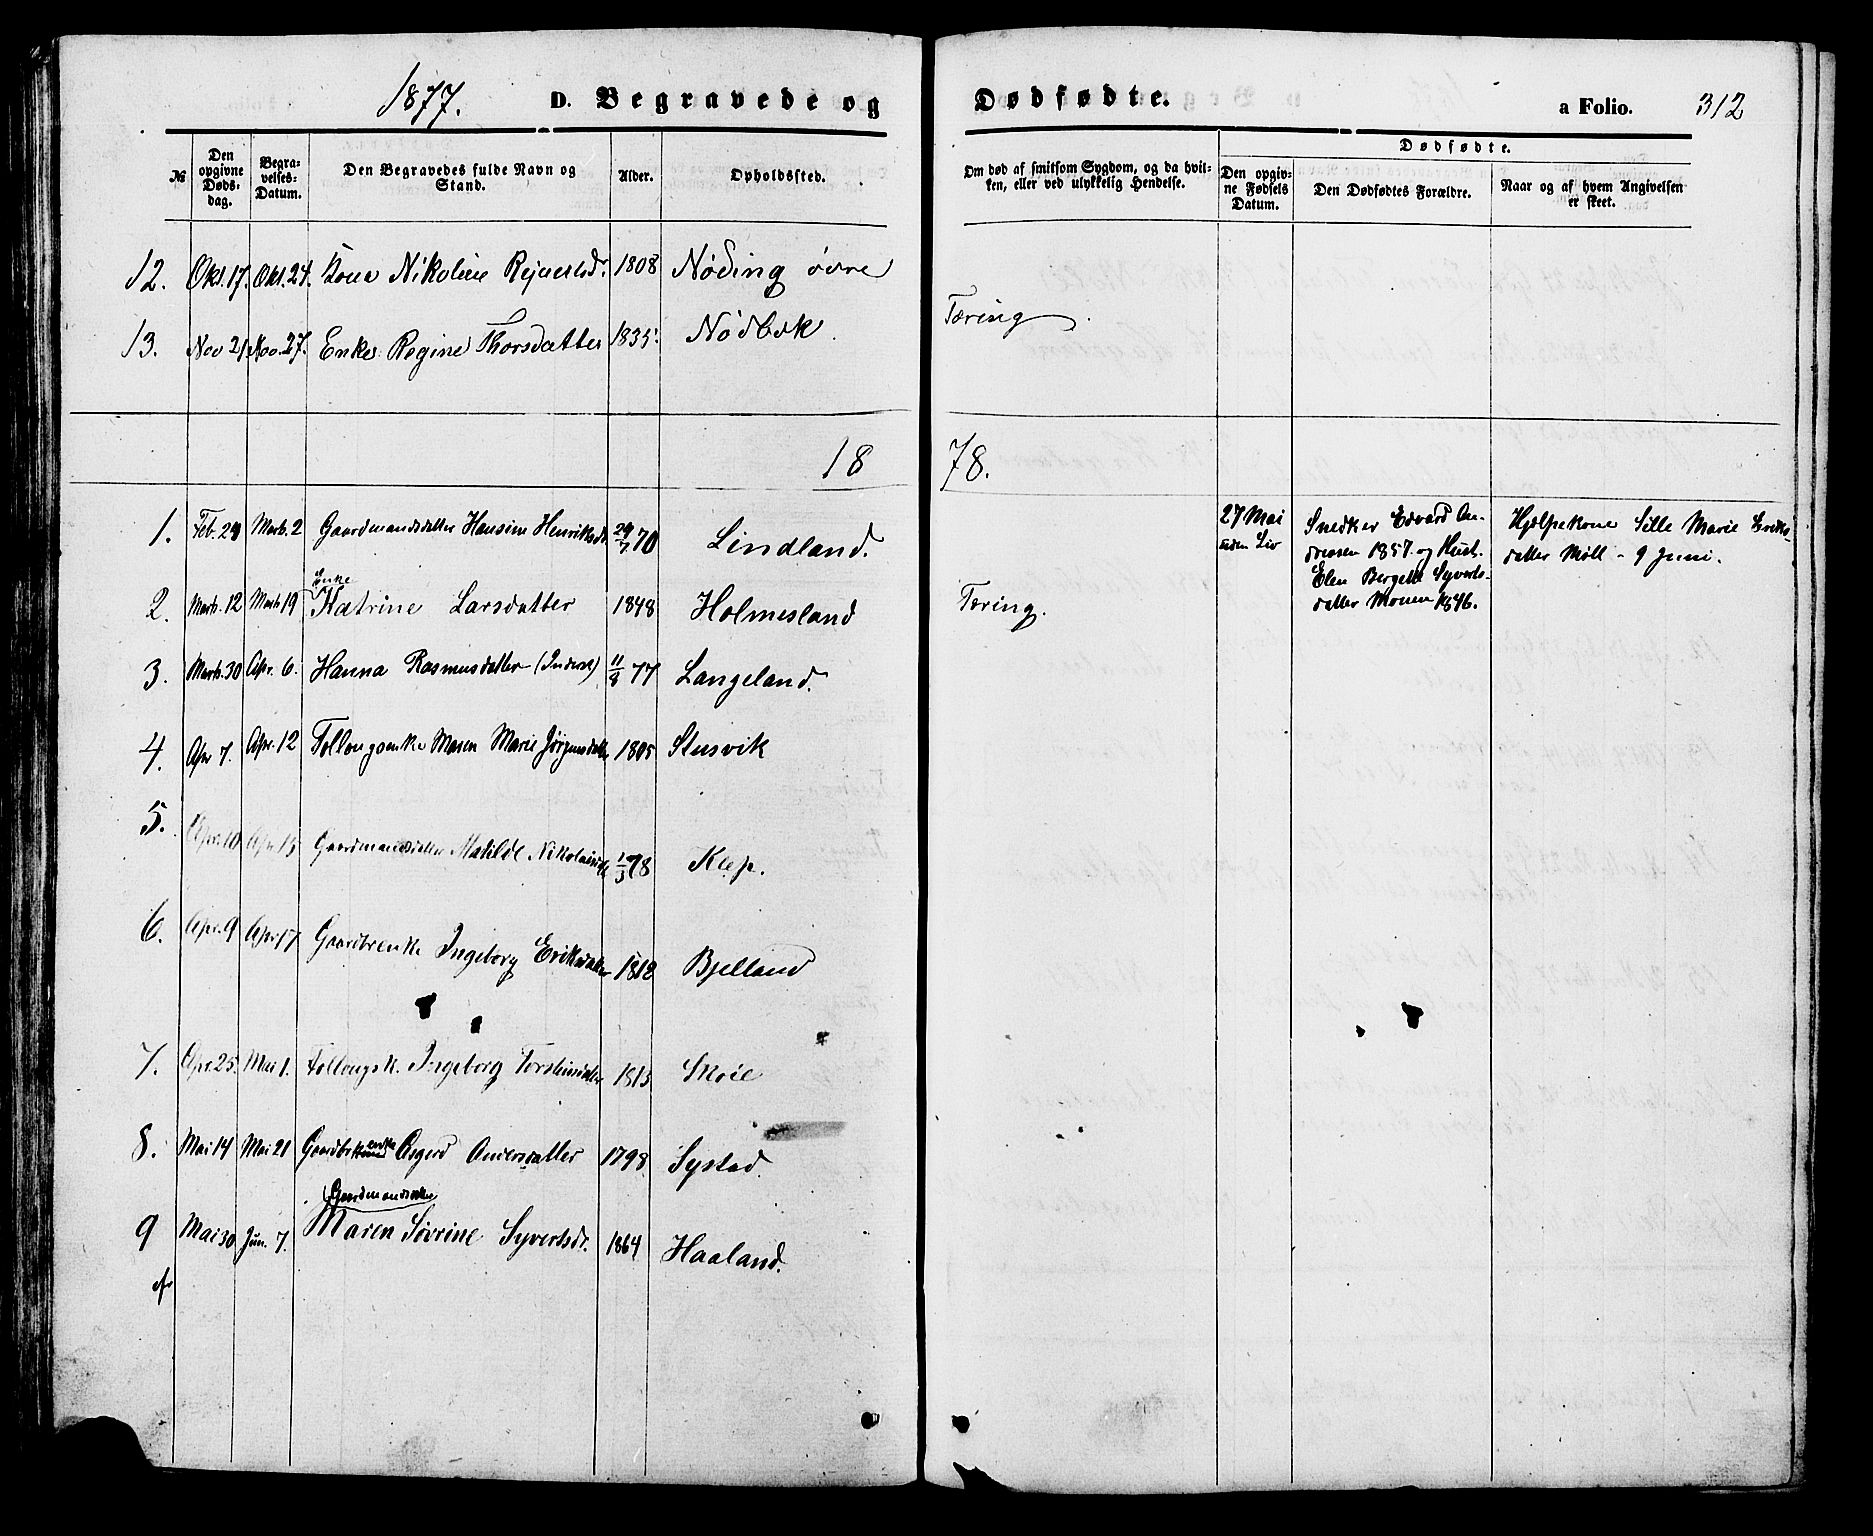 1877. D. Begravede og Dødfødte. a Folio. 312
№ Den opgivne Døds-dag. Begra-velses-Datum. Den Begravedes fulde Navn og Stand. Alder. Opholdssted. Om død af smitsom Sygdom, og da hvil-ken, eller ved ulykkelig Hendelse. Dødfødte. Den opgiv-ne Fødsels Datum. Den Dødfødtes Forældre. Naar og af hvem Angivelsen er skeet.
12. Okt. 17. Okt. 24. Kone Nikoline Rejerlsdr. 1808 Nöding övre
13. Nov 21 Nov. 27. Enke Regine Thorsdatter 1835. Nödbek. Tæring.
1878.
1. Feb. 24 Marts. 2 Gaardmandsdatter Hansine Henriksdt 29/7 70 Lindland.
27 Mai Snedker Edvard An- Hjelpekone Sille Marie Eriks-
uden Liv dreasen 1857 og Hust. datter Möll - 9 Juni.
Elen Bergette Syverts-
datter Monen 1846.
2. Marts. 12 Marts 19 Enke Katrine Larsdatter 1848 Holmesland Tæring.
3. Marts. 30 Apr. 6. Hanna Rasmusdatter (Inderst) 11/8 77 Langeland.
4. Apr 7. Apr. 12 Follougsenke Maren Marie Jörgensdatter 1805 Stusvik
5. Apr. 10 Apr. 15 Gaardmandsdatter Matilde Nikolaisdt 1/3 78 Klep.
6. Apr. 9 Apr. 17 Gaardbrenke Ingeborg Eriksdatter 1812 Bjelland
7. Apr. 25. Mai 1. Follougsk. Ingeborg Torsteinsdatter 1815 Skoie
8. Mai 14 Mai 21 Gaardbr enke Asgerd Andersdatter 1798 Systad.
9 Mai 30 Jun. 7. Gaardmandsdatter Maren Sövrine Syvertsdr. 1864 Haaland.